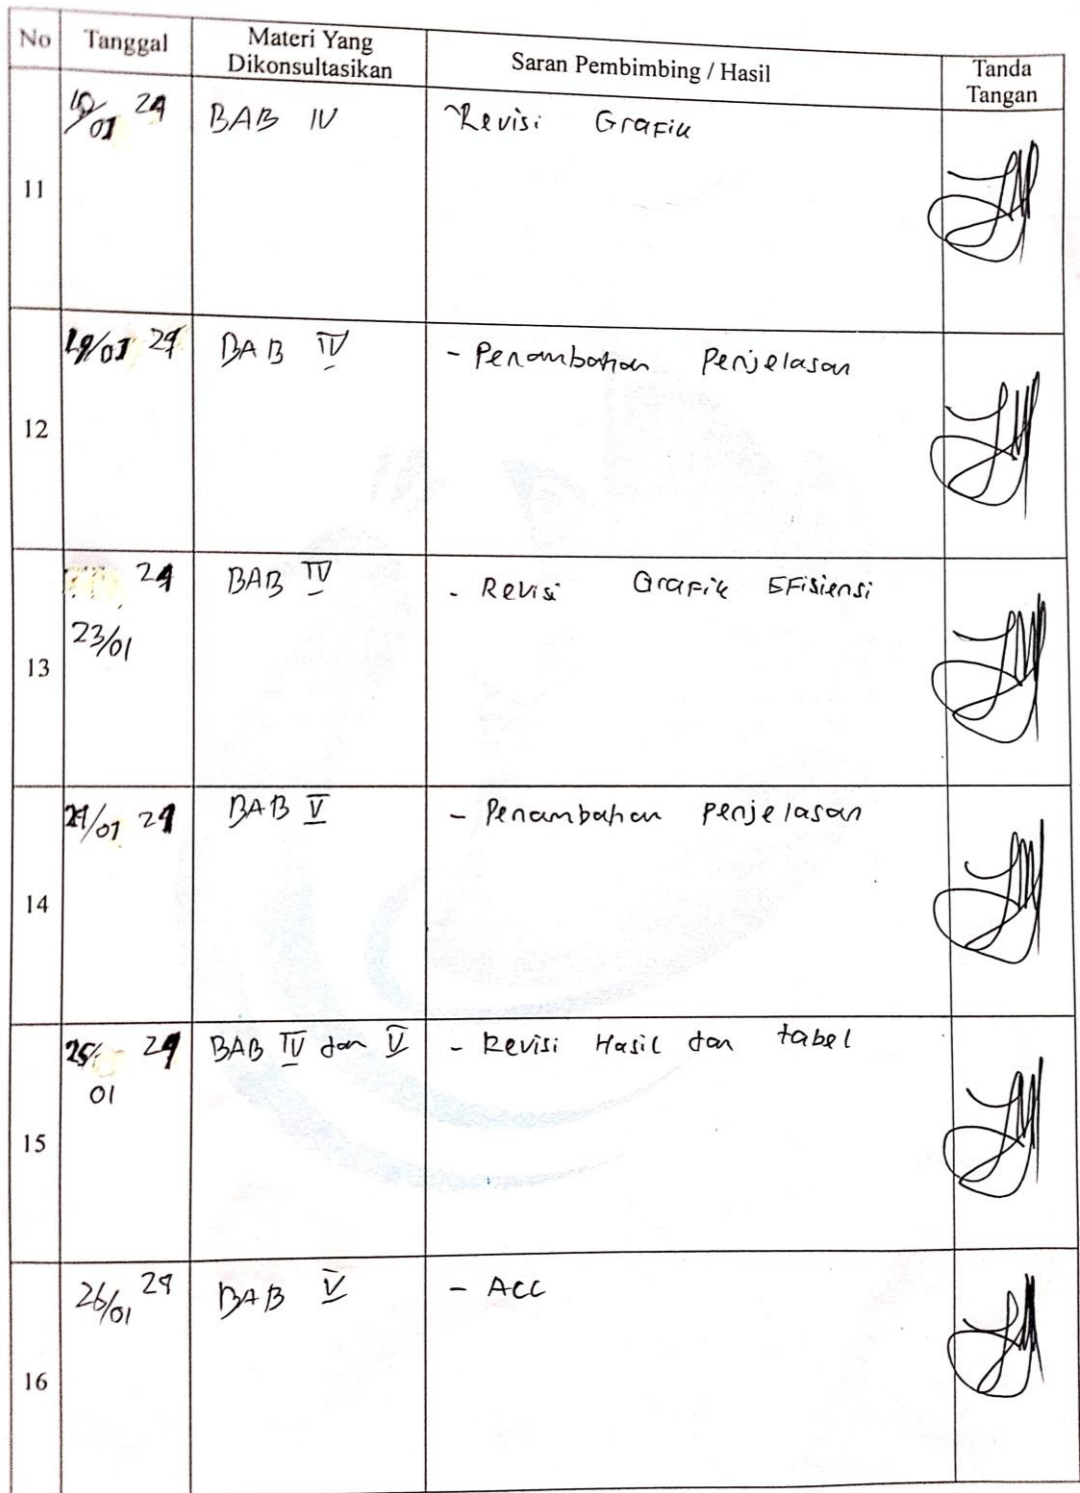 No Tanggal Materi Yang Dikonsultasikan Saran Pembimbing / Hasil Tanda Tangan
11 /01 24 BAB IV -Revisi Grafik
12 19/01 24 BAB IV - Penambahan Penjelasan
13 24 BAB IV - Revisi Grafik Efisiensi
23/01
14 24/01 24 BAB V - Penambahan penjelasan
15 25/ 24 BAB IV dan V - Revisi Hasil dan tabel
01
16 26/01 24 BAB V - ACC